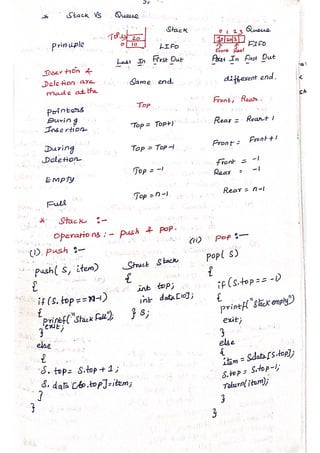 * Stack VS Queue
Stack Queue
Top→ 1 20 0 1 2 3
principle 0 10 10 20 3
Front Rear
LIFO FIFO
Last In First Out First In First Out
Insertion &
Deletion are Same end different end.
made at the
Pointers Top Front, Rear
During
Insertion Top = Top+1 Rear = Rear+1
During Top = Top-1 Front = Front+1
Deletion
Empty Top = -1 front = -1
Rear = -1
Full Top = n-1 Rear = n-1
* Stack :-
Operations :- push & pop.
(i) push :-
push( S, item)
{
if (S.top == n-1)
{
printf("Stack Full");
exit;
}
else
{
S.top = S.top + 1;
S.data [S.top]=item;
}
}
Struct Stack
{
int top;
int data[10];
} S;
(ii) pop :-
pop( S)
{
if (S.top == -1)
{
printf("Stack empty")
exit;
}
else
{
item = S.data[S.top];
S.top = S.top-1;
return(item);
}
}